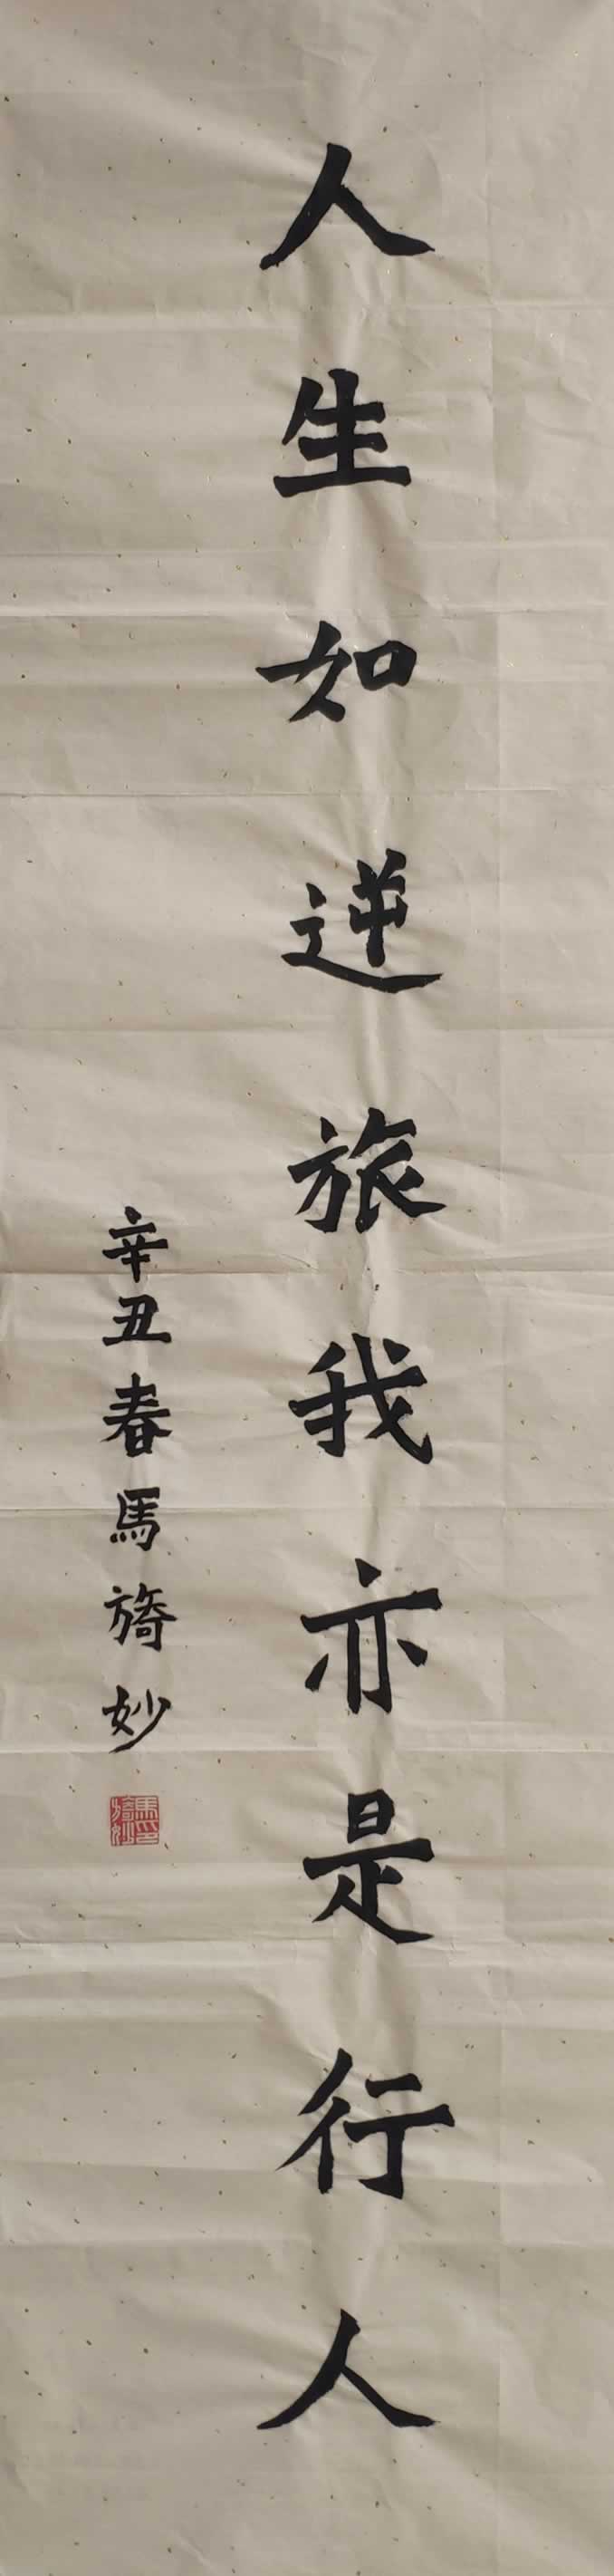 人生如逆旅我亦是行人
辛丑春馬旖妙
馬旖妙印